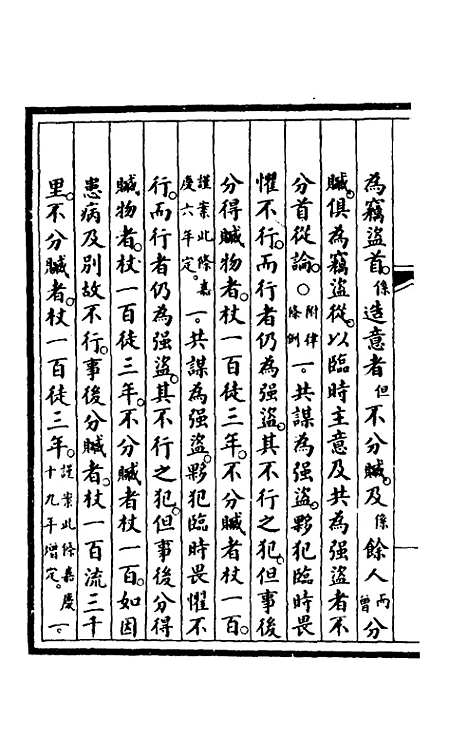 為竊盜首。係造意者但不分贓。及係餘人而曾分
贓。俱為竊盜從。以臨時主意及共為强盜者不
分首從論。○附律條例一。共謀為强盜。夥犯臨時畏
懼不行。而行者仍為强盜。其不行之犯。但事後
分得贓物者。杖一百徒三年。不分贓者杖一百。
謹案此條嘉慶六年定。一。共謀為强盜。夥犯臨時畏懼不
行。而行者仍為强盜。其不行之犯。但事後分得
贓物者。杖一百徒三年。不分贓者杖一百。如因
患病及別故不行。事後分贓者。杖一百流三千
里。不分贓者。杖一百徒三年。謹案此條嘉慶十九年增定。一。